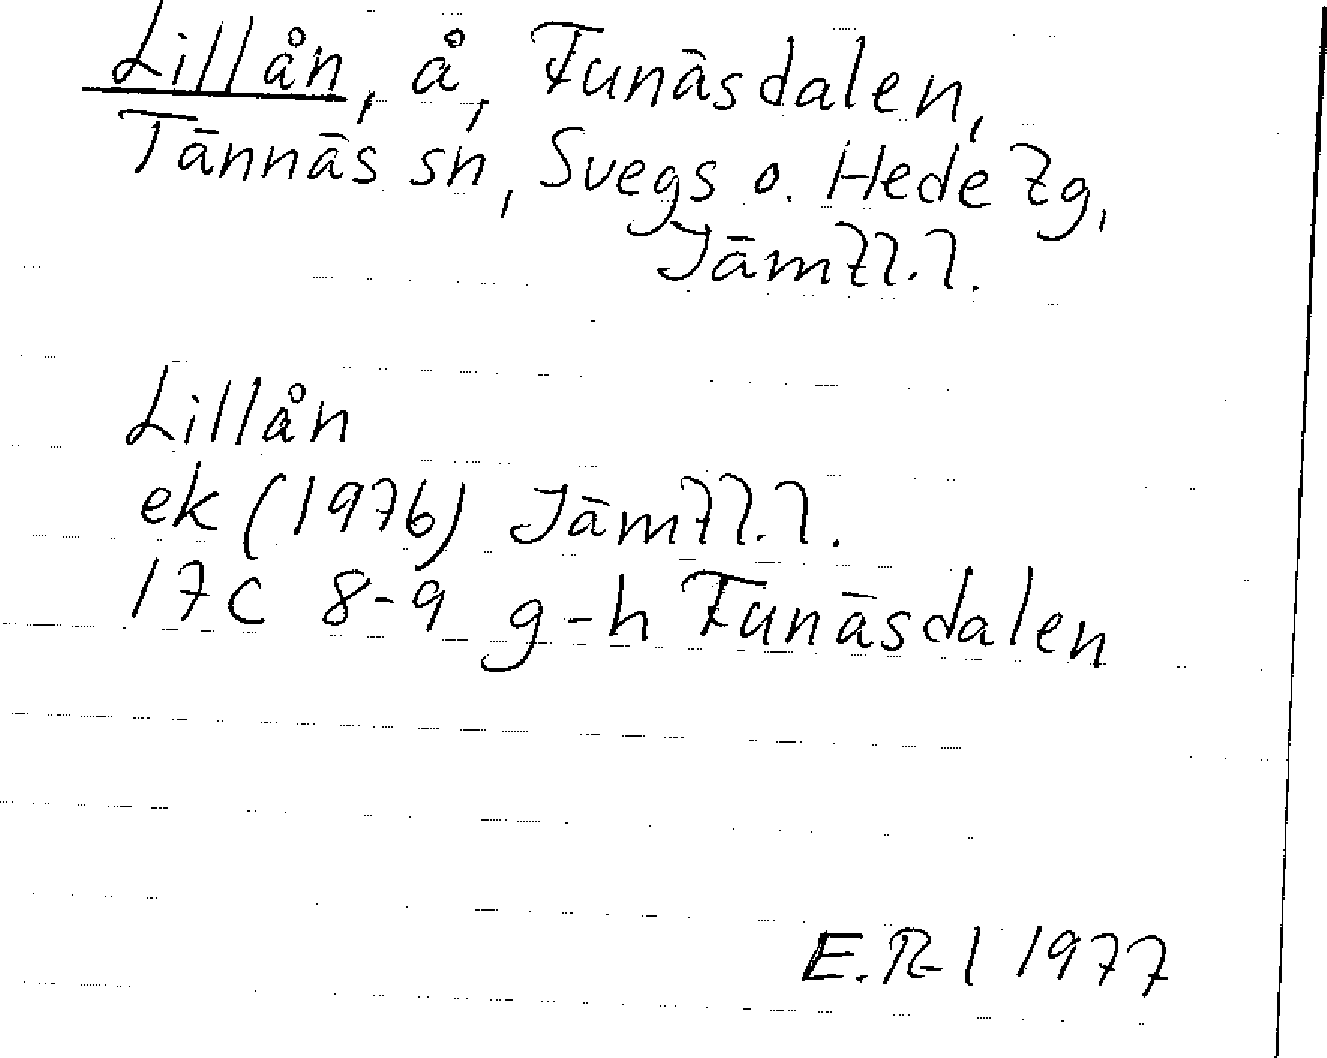 Lillån, å, Funäsdalen,
Tännäs sn, Svegs o. Hede tg,
Jämtl.l.
Lillån
ek (1976) Jämtl.l.
17C 8-9 g-h Funäsdalen
E.R-l 1977